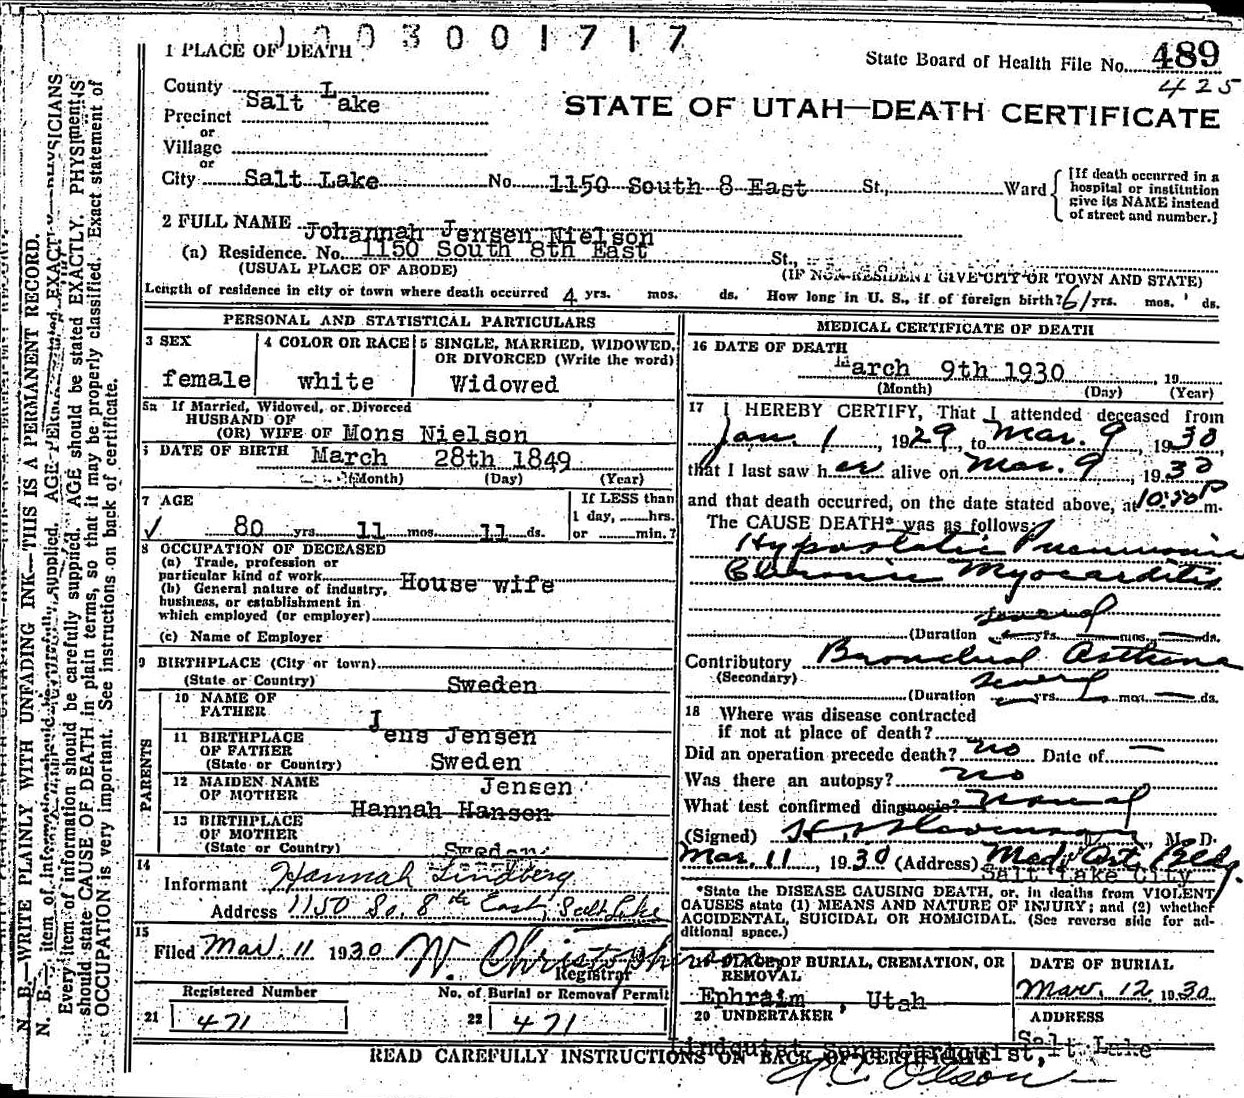 003001717
1 PLACE OF DEATH
State Board of Health File No. 489
425
County Salt Lake
STATE OF UTAH—DEATH CERTIFICATE
Precinct
or
Village
or
City Salt Lake No. 1150 South 8 East St., Ward
[If death occurred in a hospital or institution give its NAME instead of street and number.]
2 FULL NAME Johannah Jensen Nielson
(a) Residence. No. 1150 South 8th East St.,
(USUAL PLACE OF ABODE) (IF NON-RESIDENT GIVE CITY OR TOWN AND STATE)
Length of residence in city or town where death occurred 4 yrs. mos. ds. How long in U. S., if of foreign birth? 61 yrs. mos. ds.
PERSONAL AND STATISTICAL PARTICULARS
3 SEX
female
4 COLOR OR RACE
white
5 SINGLE, MARRIED, WIDOWED,
OR DIVORCED (Write the word)
Widowed
5a If Married, Widowed, or Divorced
HUSBAND OF
(OR) WIFE OF Mons Nielson
6 DATE OF BIRTH March 28th 1849
(Month) (Day) (Year)
7 AGE
80 yrs. 11 mos. 11 ds.
If LESS than
1 day, hrs.
or min.?
8 OCCUPATION OF DECEASED
(a) Trade, profession or
particular kind of work House wife
(b) General nature of industry,
business, or establishment in
which employed (or employer)
(c) Name of Employer
9 BIRTHPLACE (City or town)
(State or Country) Sweden
PARENTS
10 NAME OF
FATHER
Jens Jensen
11 BIRTHPLACE
OF FATHER
(State or Country) Sweden
12 MAIDEN NAME
OF MOTHER
Jensen
Hannah Hanson
13 BIRTHPLACE
OF MOTHER
(State or Country) Sweden
14
Informant Hannah Lindberg
Address 1150 So. 8th East, Salt Lake
15
Filed Mar. 11 1930 W. Christopherson
Registrar
Registered Number
21 471
No. of Burial or Removal Permit
22 471
MEDICAL CERTIFICATE OF DEATH
16 DATE OF DEATH
March 9th 1930, 19
(Month) (Day) (Year)
17 I HEREBY CERTIFY, That I attended deceased from
Jan. 1, 1929, to Mar. 9, 1930,
that I last saw her alive on Mar. 9, 1930
and that death occurred, on the date stated above, at 10:50 P m.
The CAUSE DEATH* was as follows:
Hypostatic Pneumonia
Chronic Myocarditis
several
(Duration yrs. mos. ds.
Contributory Bronchial Asthma
(Secondary) several
(Duration yrs. mos. ds.
18 Where was disease contracted
if not at place of death?
Did an operation precede death? no Date of —
Was there an autopsy? no
What test confirmed diagnosis? Normal
(Signed) Stevenson, M. D.
Mar. 11, 1930 (Address) Med. Art. Bldg.
Salt Lake City
*State the DISEASE CAUSING DEATH, or, in deaths from VIOLENT
CAUSES state (1) MEANS AND NATURE OF INJURY; and (2) whether
ACCIDENTAL, SUICIDAL OR HOMICIDAL. (See reverse side for additional space.)
19 PLACE OF BURIAL, CREMATION, OR
REMOVAL
Ephraim, Utah
DATE OF BURIAL
Mar. 12, 1930
20 UNDERTAKER
ADDRESS
Salt Lake
READ CAREFULLY INSTRUCTIONS ON BACK OF CERTIFICATE
Olson
N. B.—WRITE PLAINLY WITH UNFADING INK—THIS IS A PERMANENT RECORD.
Every item of information should be carefully supplied. AGE should be stated EXACTLY. PHYSICIANS
should state CAUSE OF DEATH in plain terms, so that it may be properly classified. Exact statement of
OCCUPATION is very important. See instructions on back of certificate.